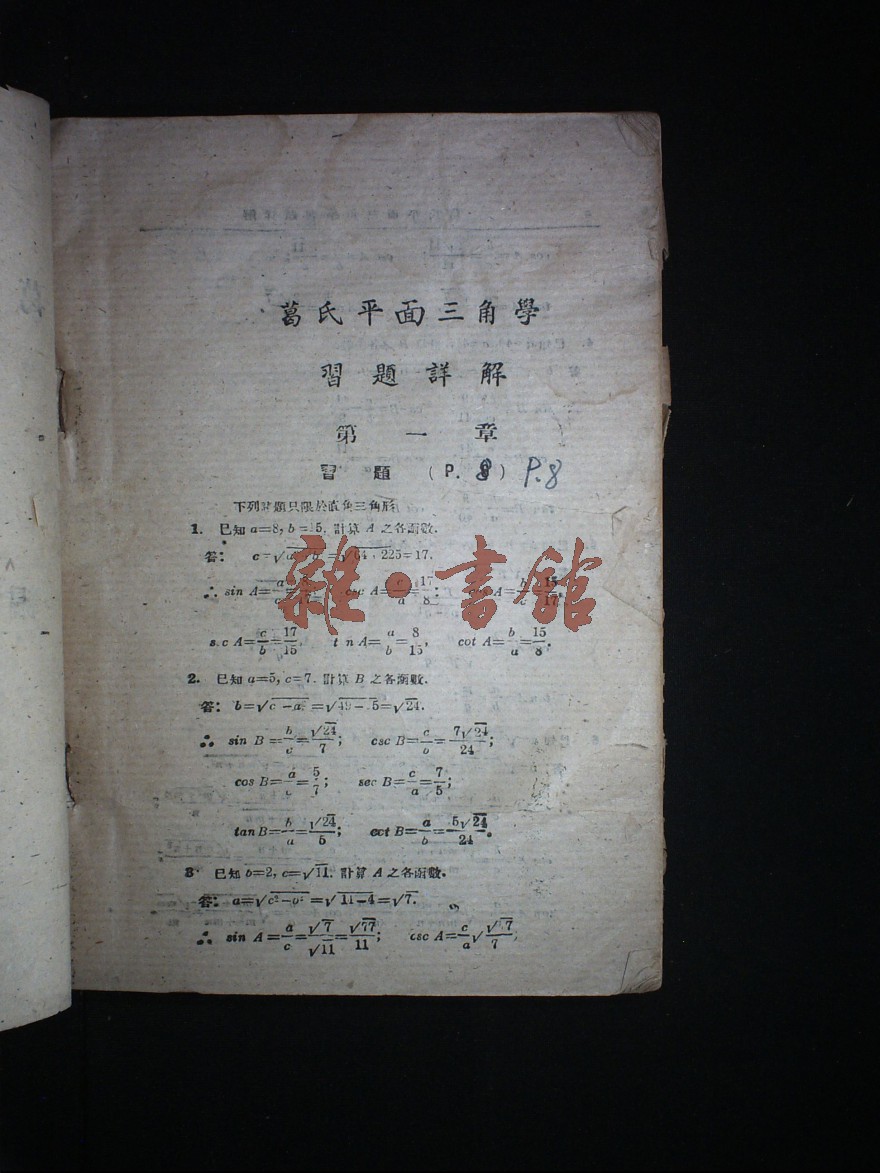 葛氏平面三角學
習題詳解
第一章
習題 (P. 8) P.8
下列習題只限於直角三角形
1. 已知 a=8, b=15. 計算 A 之各函數.
答: c=√a b =√64 225=17.
∴ sin A=a/c= csc A=c/a=17/8; A=b/c=15/17,
s c A=c/b=17/15, t n A=a/b=8/15, cot A=b/a=15/8.
雜·書館
2. 已知 a=5, c=7. 計算 B 之各函數.
答: b=√c −a² =√49− 5=√24.
∴ sin B=b/c=√24/7; csc B=c/b=7√24/24;
cos B=a/c=5/7; sec B=c/a=7/5;
tan B=b/a=√24/5; cot B=a/b=5√24/24.
3 已知 b=2, c=√11. 計算 A 之各函數.
答: a=√c²−b² =√11−4=√7.
∴ sin A=a/c=√7/√11=√77/11; csc A=c/a√√77/7,